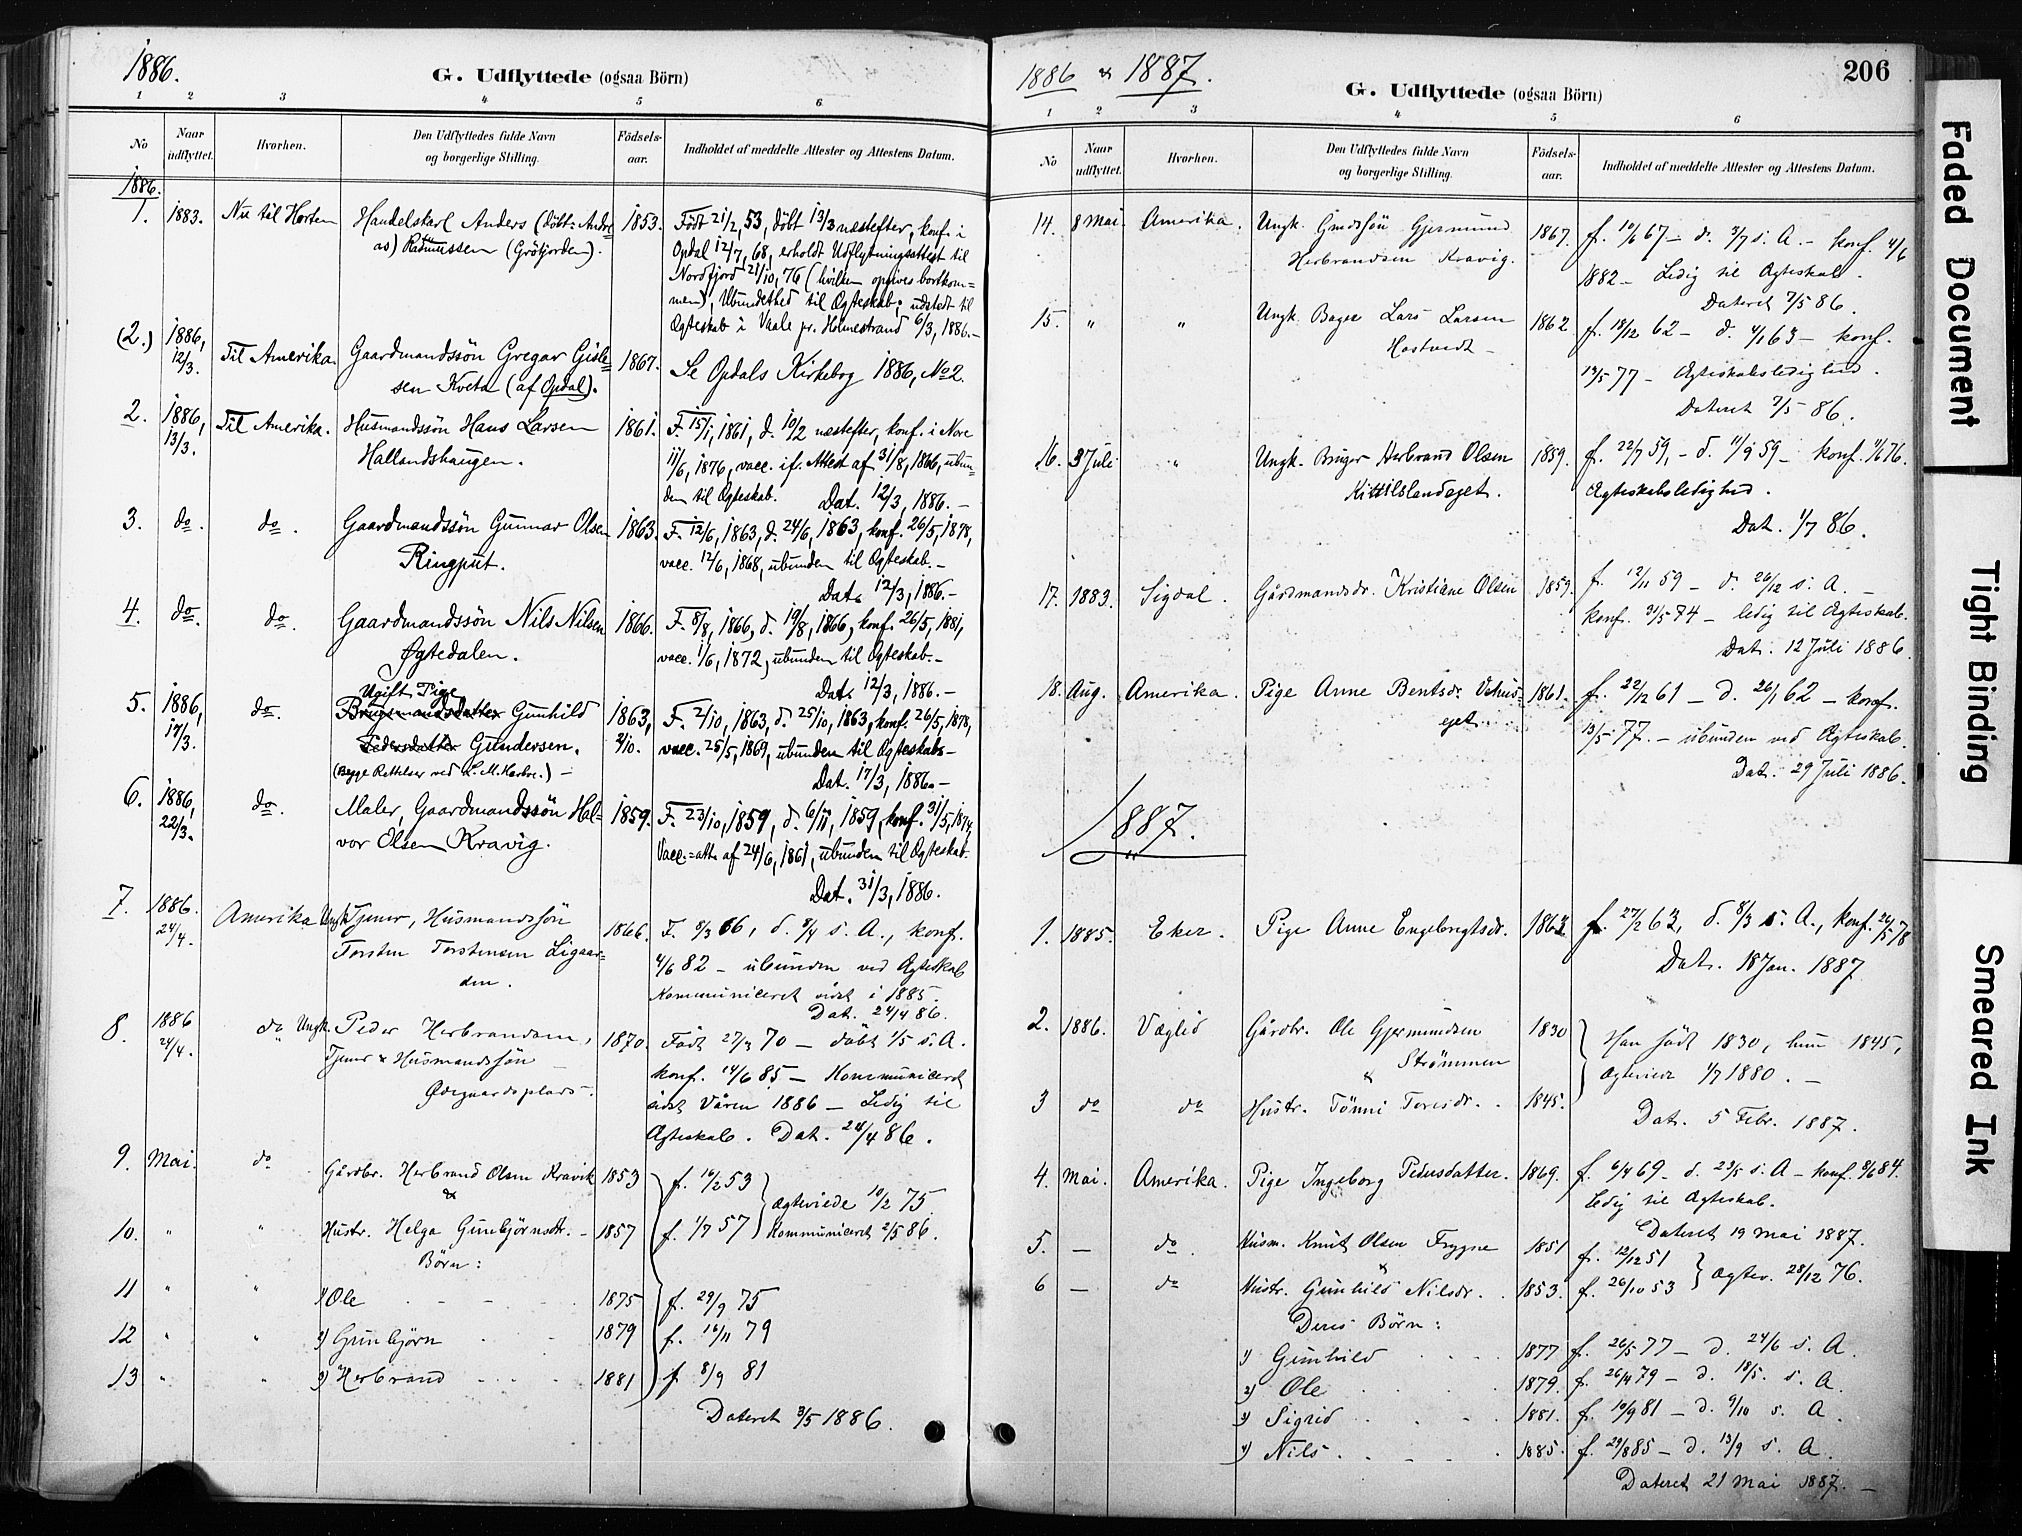 1886.
G. Udflyttede (ogsaa Börn)
1 2 3 4 5 6
No Naar udflyttet. Hvorhen. Den Udflyttedes fulde Navn og borgerlige Stilling. Födsels-aar. Indholdet af meddelte Attester og Attestens Datum.
1886.
1. 1883. Nu til Horten Handelskarl Anders (döbt: Andre= 1853. Född 21/2, 53, döbt 13/3 næstefter, konf. i
as) Rasmussen (Gröfjorden). Opdal 12/7, 68, erholdt Udflytningsattest til
Nordfjord 21/10, 76 (hvilken opgives bortkom=
men), Ubundethed til Ægteskab; udstedt til
Ægteskab i Vaale pr. Holmestrand 6/3, 1886.-
(2.) 1886, 12/3. Til Amerika. Gaardmandssön Gregar Gisle= 1867. Se Opdals Kirkebog 1886, No 2.
sen Kveta (af Opdal).
2. 1886, 13/3. Til Amerika. Husmandssön Hans Larsen 1861. F. 15/1, 1861, d. 10/2 næstefter, konf. i Nore
Hallandshaugen. 11/6, 1876, vacc. if. Attest af 31/8, 1866, ubun=
den til Ægteskab. Dat. 12/3, 1886.-
3. do. do. Gaardmandssön Gunnar Olsen 1863. F. 12/6, 1863, d. 24/6, 1863, konf. 26/5, 1878,
Ringput. vacc. 12/6, 1868, ubunden til Ægteskab.-
Dat. 12/3, 1886.-
4. do. do. Gaardmandssön Nils Nilsen 1866. F. 8/8, 1866, d. 19/8, 1866, konf. 26/5, 1881,
Øgtedalen. vacc. 1/6, 1872, ubunden til Ægteskab.-
Dat. 12/3, 1886.-
Ugift Pige
5. 1886, 17/3. do. Brugsmandsdatter Gunhild 1863, 2/10. F. 2/10, 1863, d. 25/10, 1863, konf. 26/5, 1878,
Pedersdatter Gundersen. vacc. 25/5, 1869, ubunden til Ægteskab.-
(Begge Rettelser ved L. M. Harboe.) - Dat. 17/3, 1886.-
6. 1886, 22/3. do. Maler, Gaardmandssön Hal= 1859. F. 23/10, 1859, d. 6/11, 1859, konf. 31/5, 1874,
vor Olsen Kravig. Vacc.=att. af 24/6, 1861, ubunden til Ægteskab.
Dat. 31/3, 1886.
7. 1886. 24/4. Amerika Ungk. Tjener, Husmandssön 1866. F. 8/3 66, d. 8/4 s. A., konf.
Torsten Torstensen Ligaar= 4/6 82 - ubunden ved Ægteskab
den. Kommuniceret sidst i 1885.
Dat. 24/4 86.
8. 1886 24/4. do Ungk. Peder Herbrandsen, 1870. Född 27/3 70 - döbt 1/5 s. A.
Tjener & Husmandssön konf. 14/6 85 - Kommuniceret
Ødegaardsplads. sidst Våren 1886 - Ledig til
Ægteskab. Dat. 24/4 86.
9. Mai. do Gårdbr. Herbrand Olsen Kravik 1853 f. 16/2 53 } Ægteviede 10/2 75
&
10. " " Hustr. Helga Gunbjörnsdtr. - 1857 f. 1/7 57 } Kommuniceret 2/5 86.
Börn:
11 " " 1) Ole 1875 f. 29/9 75
12 " " 2) Gunbjörn 1879 f. 16/11 79
13 " " 3) Herbrand 1881 f 8/9 81
Dateret 3/5 1886.
1886 & 1887.
G. Udflyttede (ogsaa Börn)
206
1 2 3 4 5 6
No Naar udflyttet. Hvorhen. Den Udflyttedes fulde Navn og borgerlige Stilling. Födsels-aar. Indholdet af meddelte Attester og Attestens Datum.
14. 8 Mai. Amerika. Ungk. Gmdssön Gjermund 1867. f. 10/6 67 - d. 7/7 s. A. - konf. 4/6
Herbrandsen Kravig. 1882 - Ledig til Ægteskab.
Dateret 7/5 86.
15. " " Ungk. Bager Lars Larsen 1862 f. 18/12 62 - d. 4/1 63 - konf.
Hostvedt - 13/5 77 - Ægteskabsledighed.
Dateret 7/5 86.
16. 3 Juli " Ungk. Bruger Herbrand Olsen 1859. f. 22/7 59, - d. 11/9 59 - konf. 11/6 76.
Kittilslandeget. Ægteskabsledighed.
Dat. 1/7 86.
17. 1883. Sigdal. Gårdmandsdr. Kristiane Olsen 1859. f. 12/11 59 - d. 26/12 s. A. -
konf. 31/5 74 - ledig til Ægteskab.
Dat. 12 Juli 1886.
18. Aug. Amerika. Pige Anne Bentsdr. Vehus= 1861. f. 22/12 61 - d. 26/1 62 - konf.
eget. 13/5 77. - ubunden ved Ægteskab.
Dat. 29 Juli 1886.
1887.
1. 1885. Eker. Pige Anne Engebrigtsdr. 1863. f. 27/2 63, d. 8/3 s. A., konf. 26/5 78
Dat. 18 Jan. 1887
2. 1886. Væglid Gårdbr. Ole Gjermundsen 1830 } Han född 1830, hun 1845,
& Strömmen Ægteviede 1/7 1880. -
3 do do Hustr. Tönni Toresdr. . 1845. Dat. 5 Febr. 1887.
4. Mai. Amerika. Pige Ingeborg Pedersdatter. 1869. f. 6/4 69 - d. 23/5 s. A - konf. 8/6 84.
Ledig til Ægteskab.
Dateret 19 Mai 1887.
5. - do. Husm. Knut Olsen Frygne 1851 f. 12/12 51 } Ægtev. 28/12 76.
&
6 - do Hustr. Gunhild Nilsdr. . 1853. f. 26/10 53
Deres Börn:
1) Gunhild 1877 f. 26/5 77 - d. 24/6 s. A.
2) Ole 1879. f. 26/4 79 - d. 18/5. s. A.
3) Sigrid 1881. f. 10/9 81 - d. 9/10 s. A.
4) Nils 1885. f. 29/8 85 - d. 13/9 s. A.
Dateret 21 Mai 1887. -
Faded Document
Tight Binding
Smeared Ink